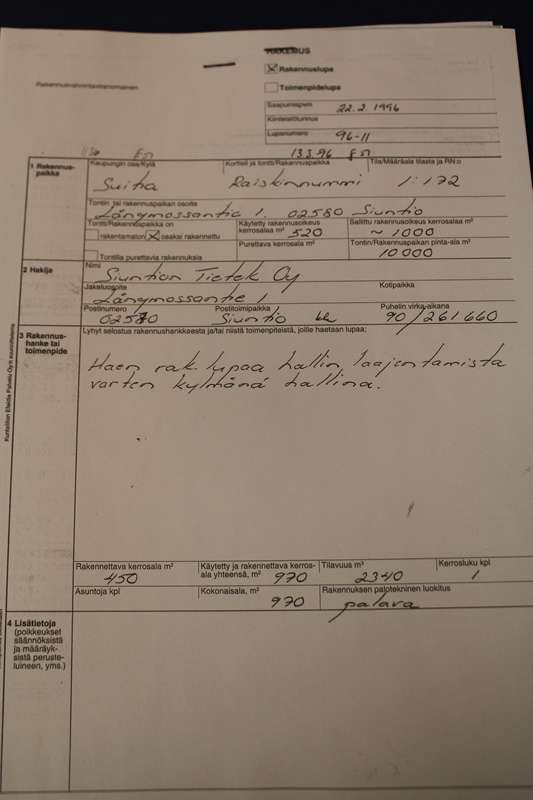 HAKEMUS
Rakennuslupa
Rakennusvalvontaviranomainen
Toimenpidelupa
Saapumispvm 22.2.1996
Kiinteistötunnus
Lupanumero 96-11
13.3.96
1 Rakennus-
paikka
Kaupungin osa/Kylä
Kortteli ja tontti/Rakennuspaikka
Tila/Määräala tilasta ja RN:o
Suitia Raiskinnummi 1:172
Tontin tai rakennuspaikan osoite
Långmossantie 1 02580 Siuntio
Tontti/Rakennuspaikka on
rakentamaton
osaksi rakennettu
Käytetty rakennusoikeus
kerrosalaa m² 520
Sallittu rakennusoikeus kerrosalaa m²
~ 1000
Tontilla purettavia rakennuksia
Purettava kerrosala m²
Tontin/Rakennuspaikan pinta-ala m²
10 000
2 Hakija
Nimi
Siuntion Tietek Oy
Jakeluosoite
Kotipaikka
Långmossantie 1
Postinumero
Postitoimipaikka
Puhelin virka-aikana
02580 Siuntio 90/261 660
3 Rakennus-
hanke tai
toimenpide
Lyhyt selostus rakennushankkeesta ja/tai niistä toimenpiteistä, joille haetaan lupaa:
Haen rak. lupaa hallin laajentamista
varten kylmänä hallina.
Rakennettava kerrosala m²
450
Käytetty ja rakennettava kerros-
ala yhteensä, m² 970
Tilavuus m³
2340
Kerrosluku kpl
1
Asuntoja kpl
Kokonaisala, m²
970
Rakennuksen palotekninen luokitus
palava
4 Lisätietoja
(poikkeukset
säännöksistä
ja määräyk-
sistä peruste-
luineen, yms.)